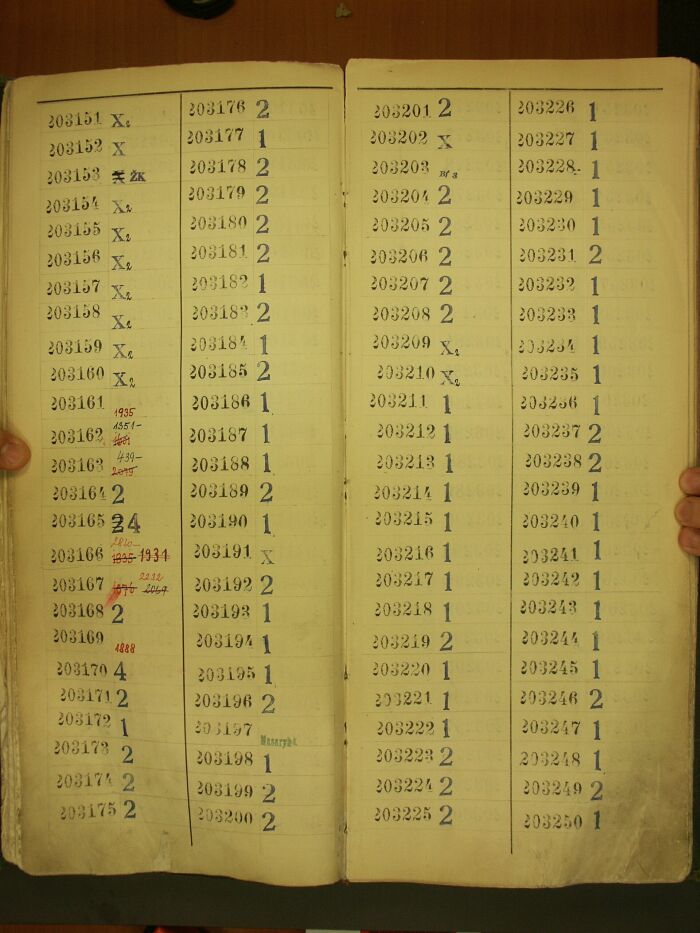 203151 X2
203152 X
203153 X ŽK
203154 X2
203155 X2
203156 X2
203157 X2
203158 X2
203159 X2
203160 X2
203161 1935
203162 1351-
203163 439-
2079
203164 2
203165 2 4
2810-
203166 1935 1931
2232
203167 2069
203168 2
203169 1888
203170 4
203171 2
203172 1
203173 2
203174 2
203175 2
203176 2
203177 1
203178 2
203179 2
203180 2
203181 2
203182 1
203183 2
203184 1
203185 2
203186 1
203187 1
203188 1
203189 2
203190 1
203191 X
203192 2
203193 1
203194 1
203195 1
203196 2
203197 Masaryka
203198 1
203199 2
203200 2
203201 2
203202 X
203203
203204 2
203205 2
203206 2
203207 2
203208 2
203209 X2
203210 X2
203211 1
203212 1
203213 1
203214 1
203215 1
203216 1
203217 1
203218 1
203219 2
203220 1
203221 1
203222 1
203223 2
203224 2
203225 2
203226 1
203227 1
203228 1
203229 1
203230 1
203231 2
203232 1
203233 1
203234 1
203235 1
203236 1
203237 2
203238 2
203239 1
203240 1
203241 1
203242 1
203243 1
203244 1
203245 1
203246 2
203247 1
203248 1
203249 2
203250 1